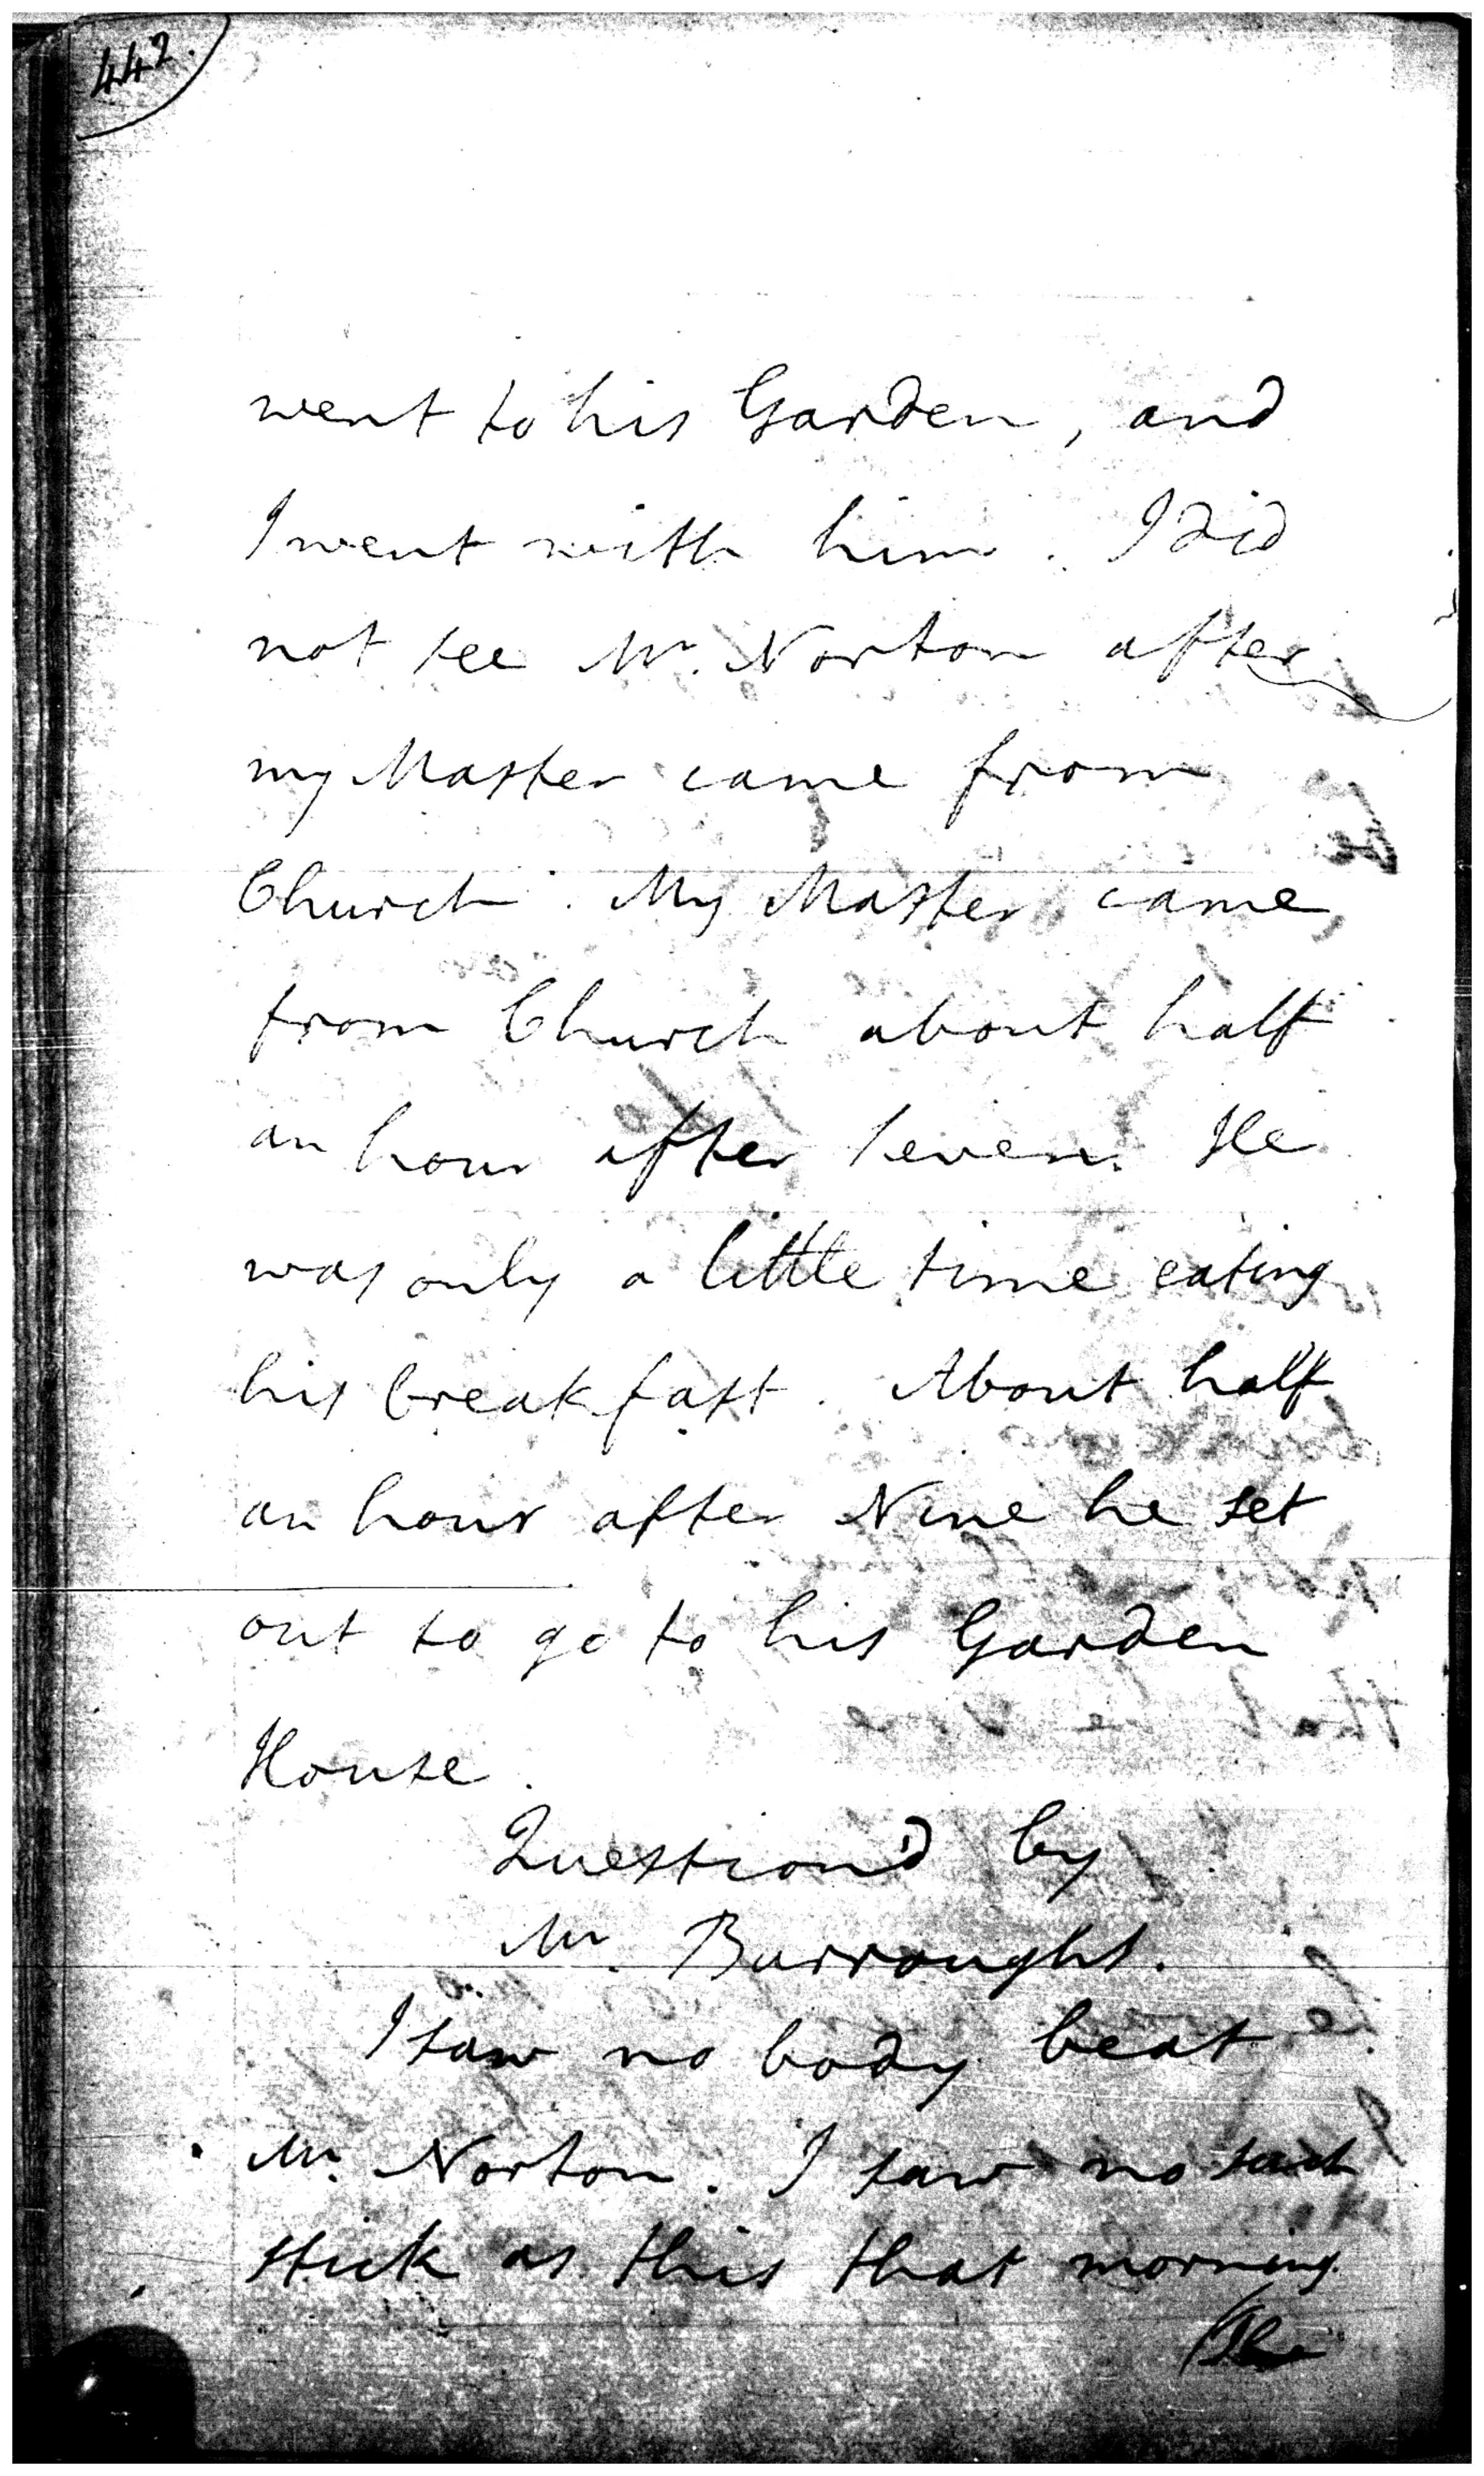 442.
went to his Garden, and
I went with him. I did
not see Mr. Norton after
my Master came from
Church. My Master came
from Church about half
an hour after seven. He
was only a little time eating
his breakfast. About half
an hour after Nine he set
out to go to his Garden
House.
Question'd by
Mr. Burroughs.
I saw no body beat
Mr. Norton. I saw no such
stick as this that morning.
The